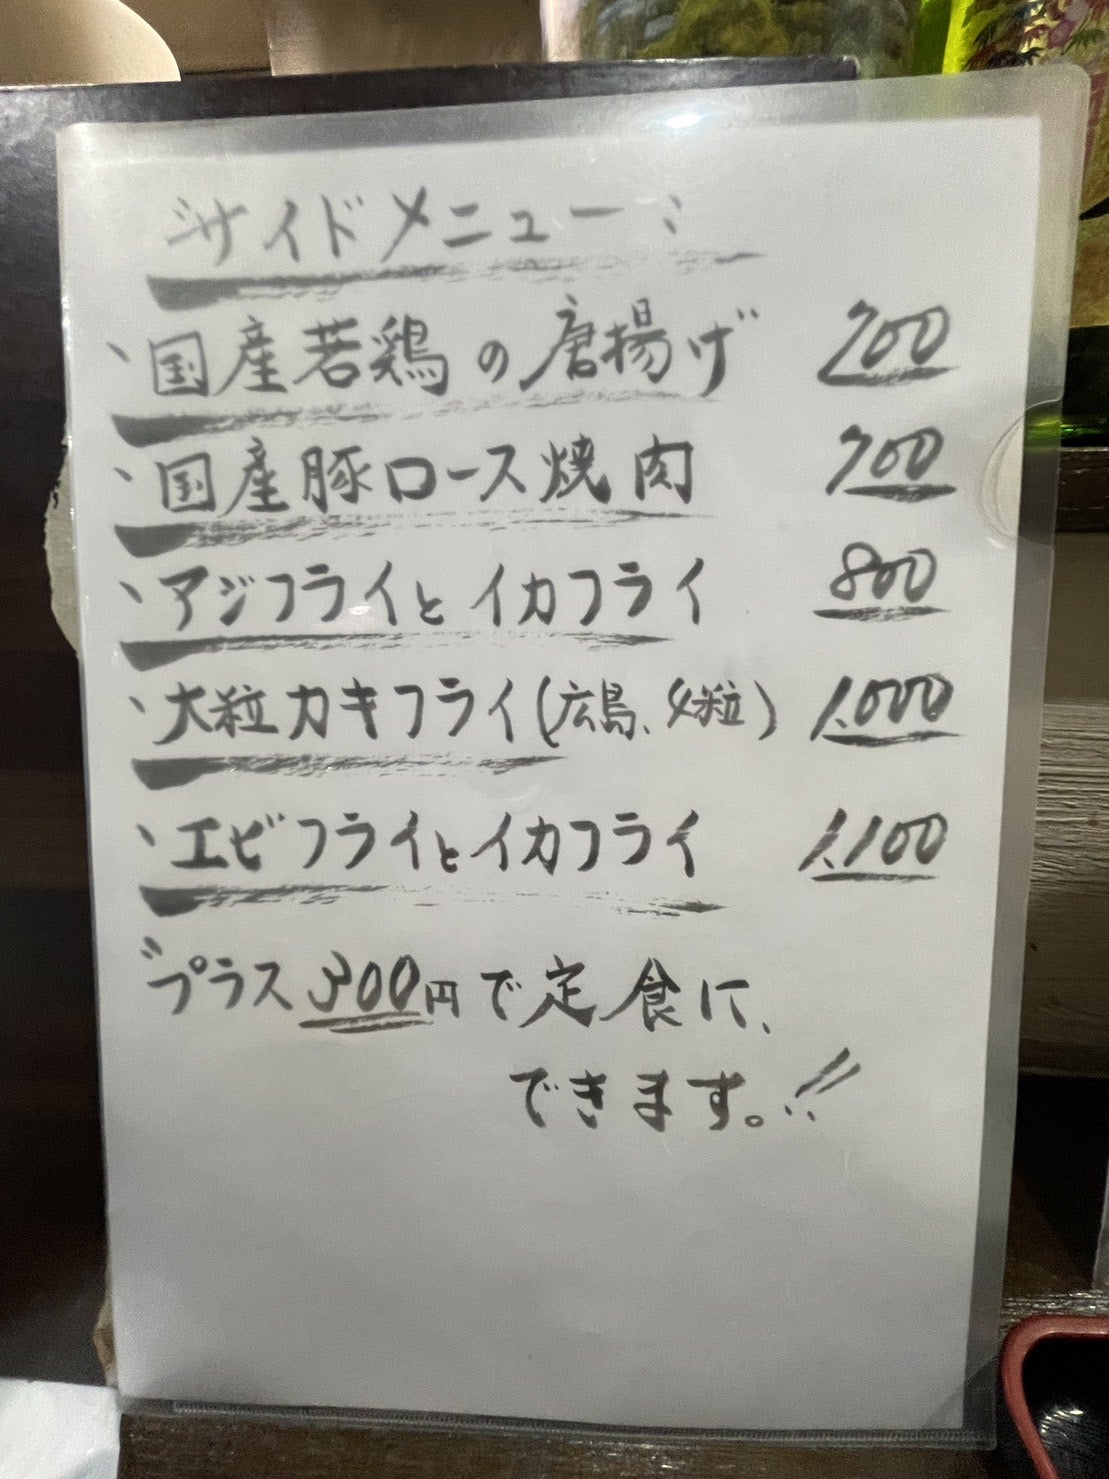 〝サイドメニュー〟
、国産若鶏の唐揚げ 700
、国産豚ロース焼肉 700
、アジフライとイカフライ 800
、大粒カキフライ(広島、4粒) 1.000
、エビフライとイカフライ 1.100
〝プラス300円で定食に、
できます。!!